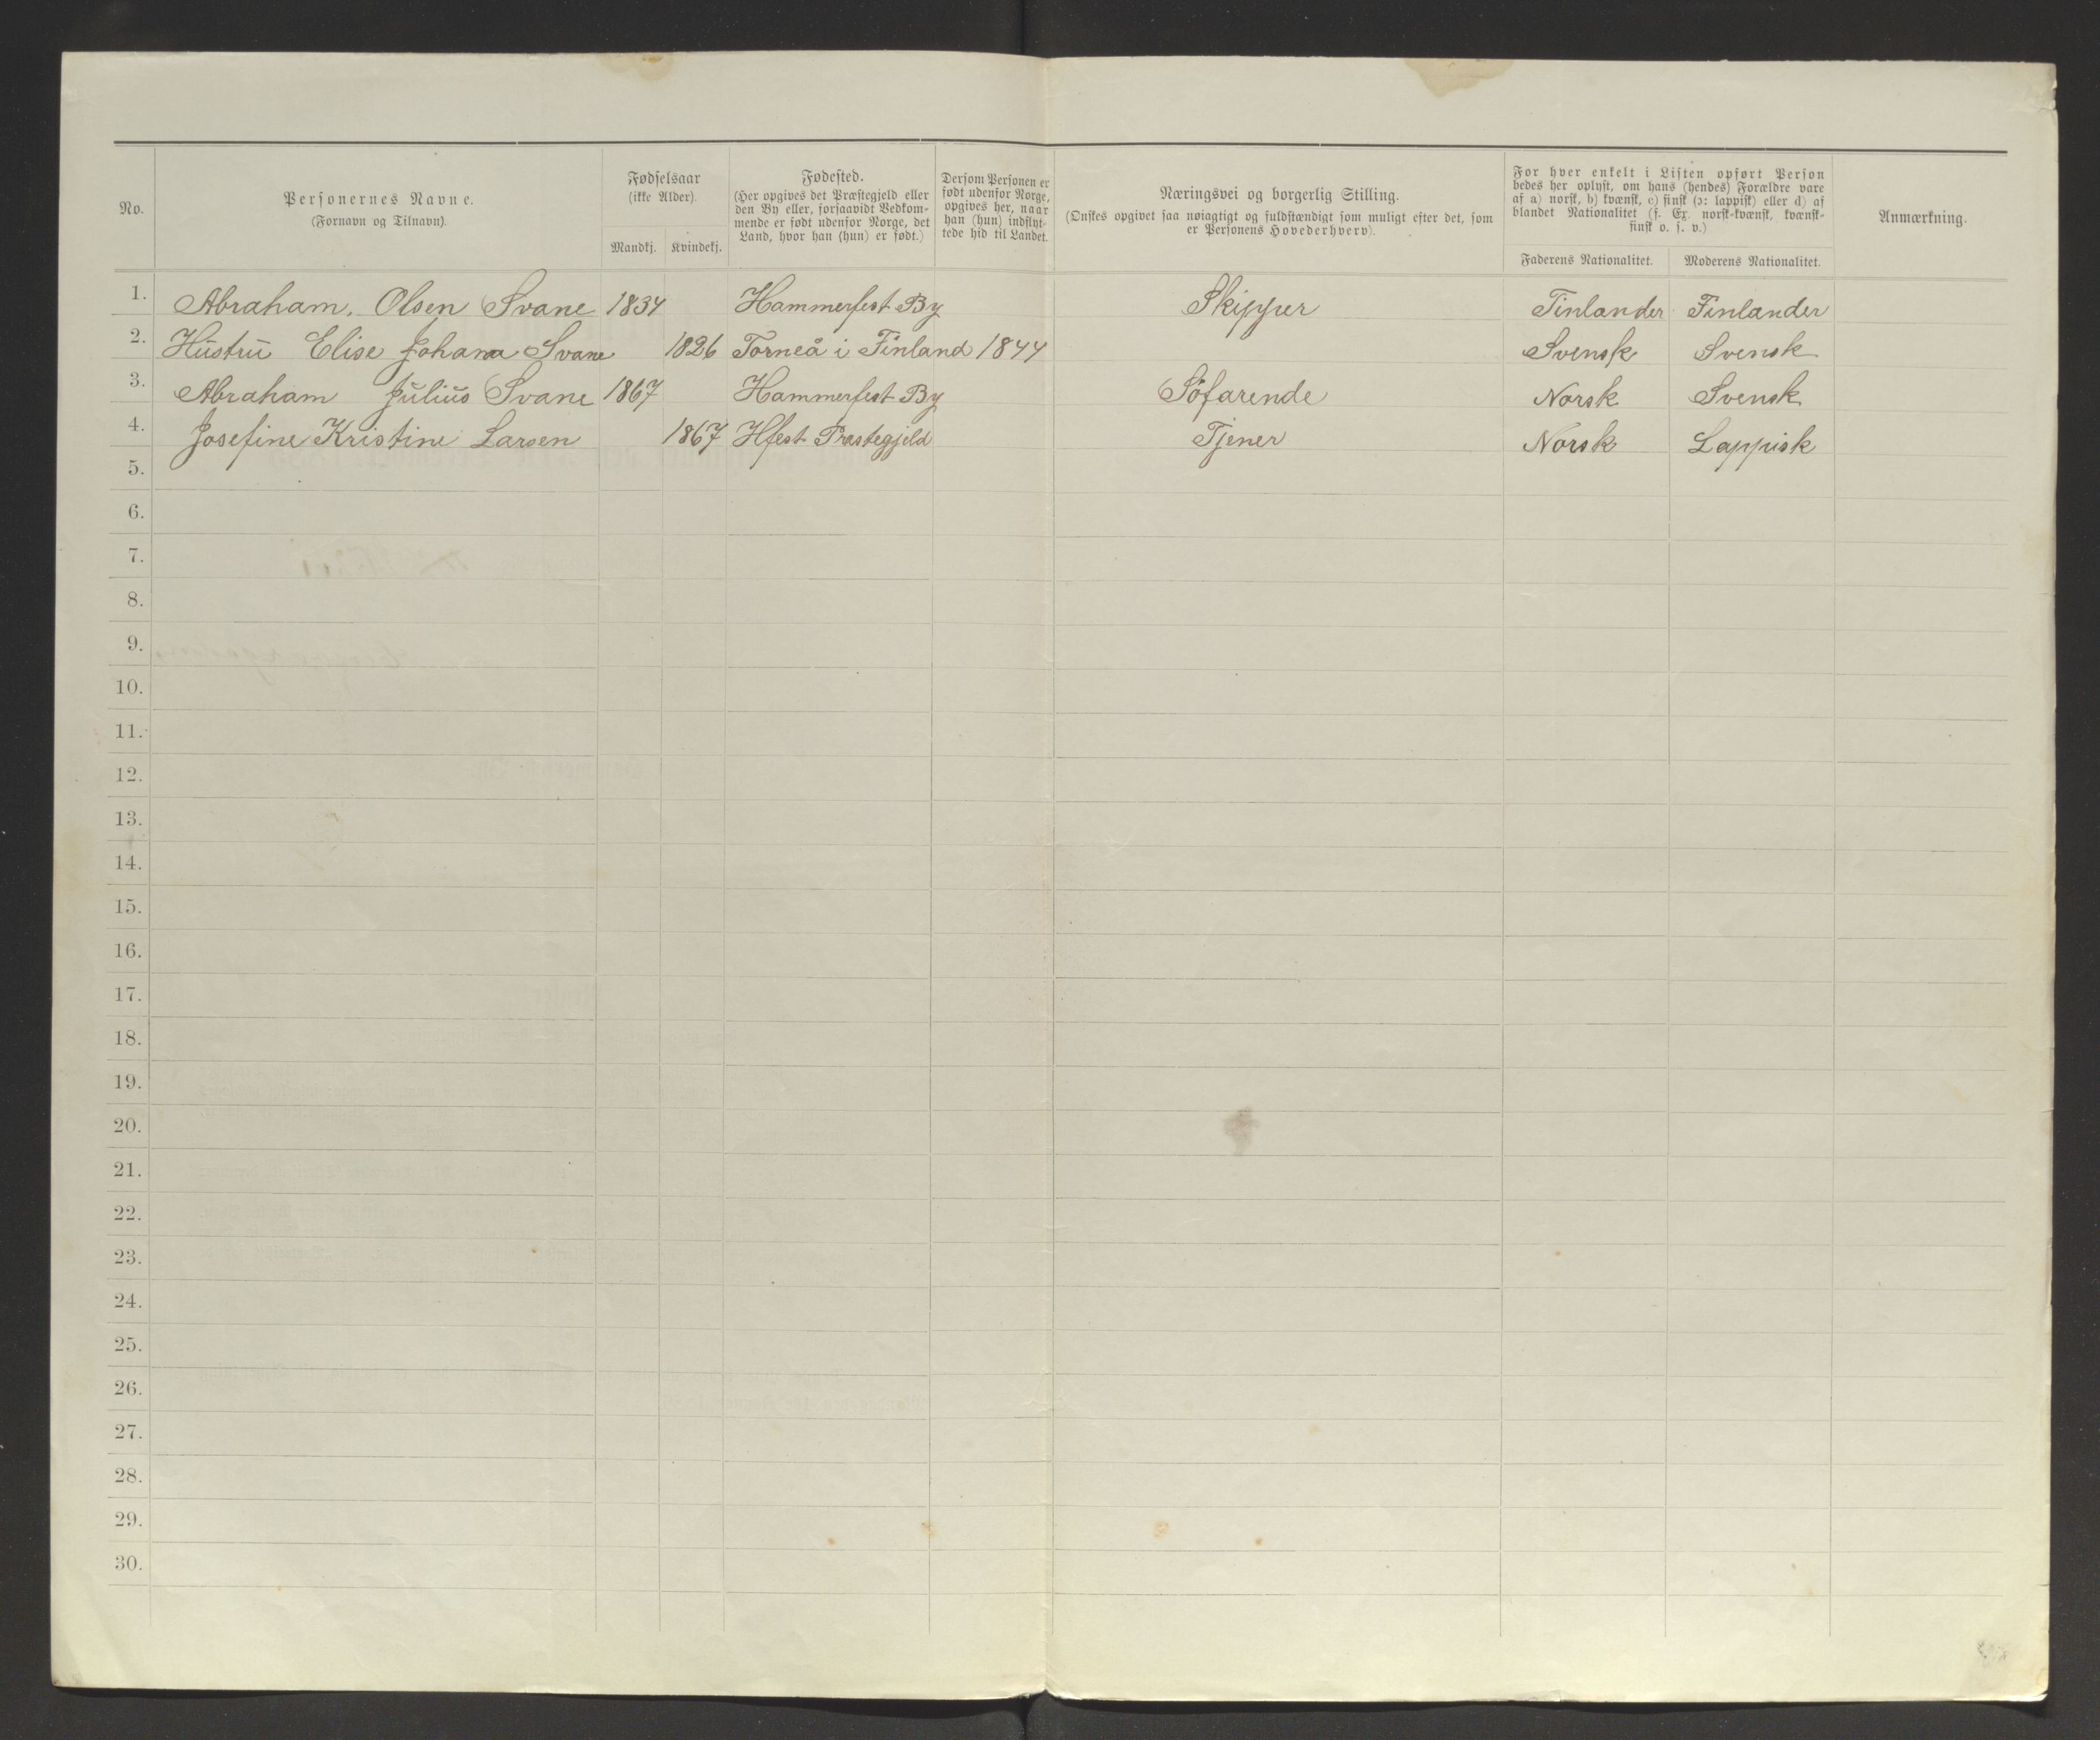 No.
Personernes Navne.
(Fornavn og Tilnavn).
Fødselsaar
(ikke Alder).
Mandkj. Kvindekj.
Fødested.
(Her opgives det Præstegjeld eller
den By eller, forsaavidt Vedkom-
mende er født udenfor Norge, det
Land, hvor han (hun) er født.)
Dersom Personen er
født udenfor Norge,
opgives her, naar
han (hun) indflyt-
tede hid til Landet.
Næringsvei og borgerlig Stilling.
(Ønskes opgivet saa nøiagtigt og fuldstændigt som muligt efter det, som
er Personens Hovederhverv).
For hver enkelt i Listen opført Person
bedes her oplyst, om hans (hendes) Forældre vare
af a) norsk, b) kvænsk, c) finsk (ɔ: lappisk) eller d) af
blandet Nationalitet (f. Ex. norsk-kvænsk, kvænsk-
finsk o. s. v.)
Faderens Nationalitet. Moderens Nationalitet.
Anmærkning.
1. Abraham. Olsen Svane 1834 Hammerfest By Skipper Finlander Finlander
2. Hustru Elise Johana Svane 1826 Torneå i Finland 1844 Svensk Svensk
3. Abraham Julius Svane 1867 Hammerfest By Söfarende Norsk Svensk
4. Josefine Kristine Larsen 1867 Hfest Præstegjeld Tjener Norsk Lappisk
5.
6.
7.
8.
9.
10.
11.
12.
13.
14.
15.
16.
17.
18.
19.
20.
21.
22.
23.
24.
25.
26.
27.
28.
29.
30.